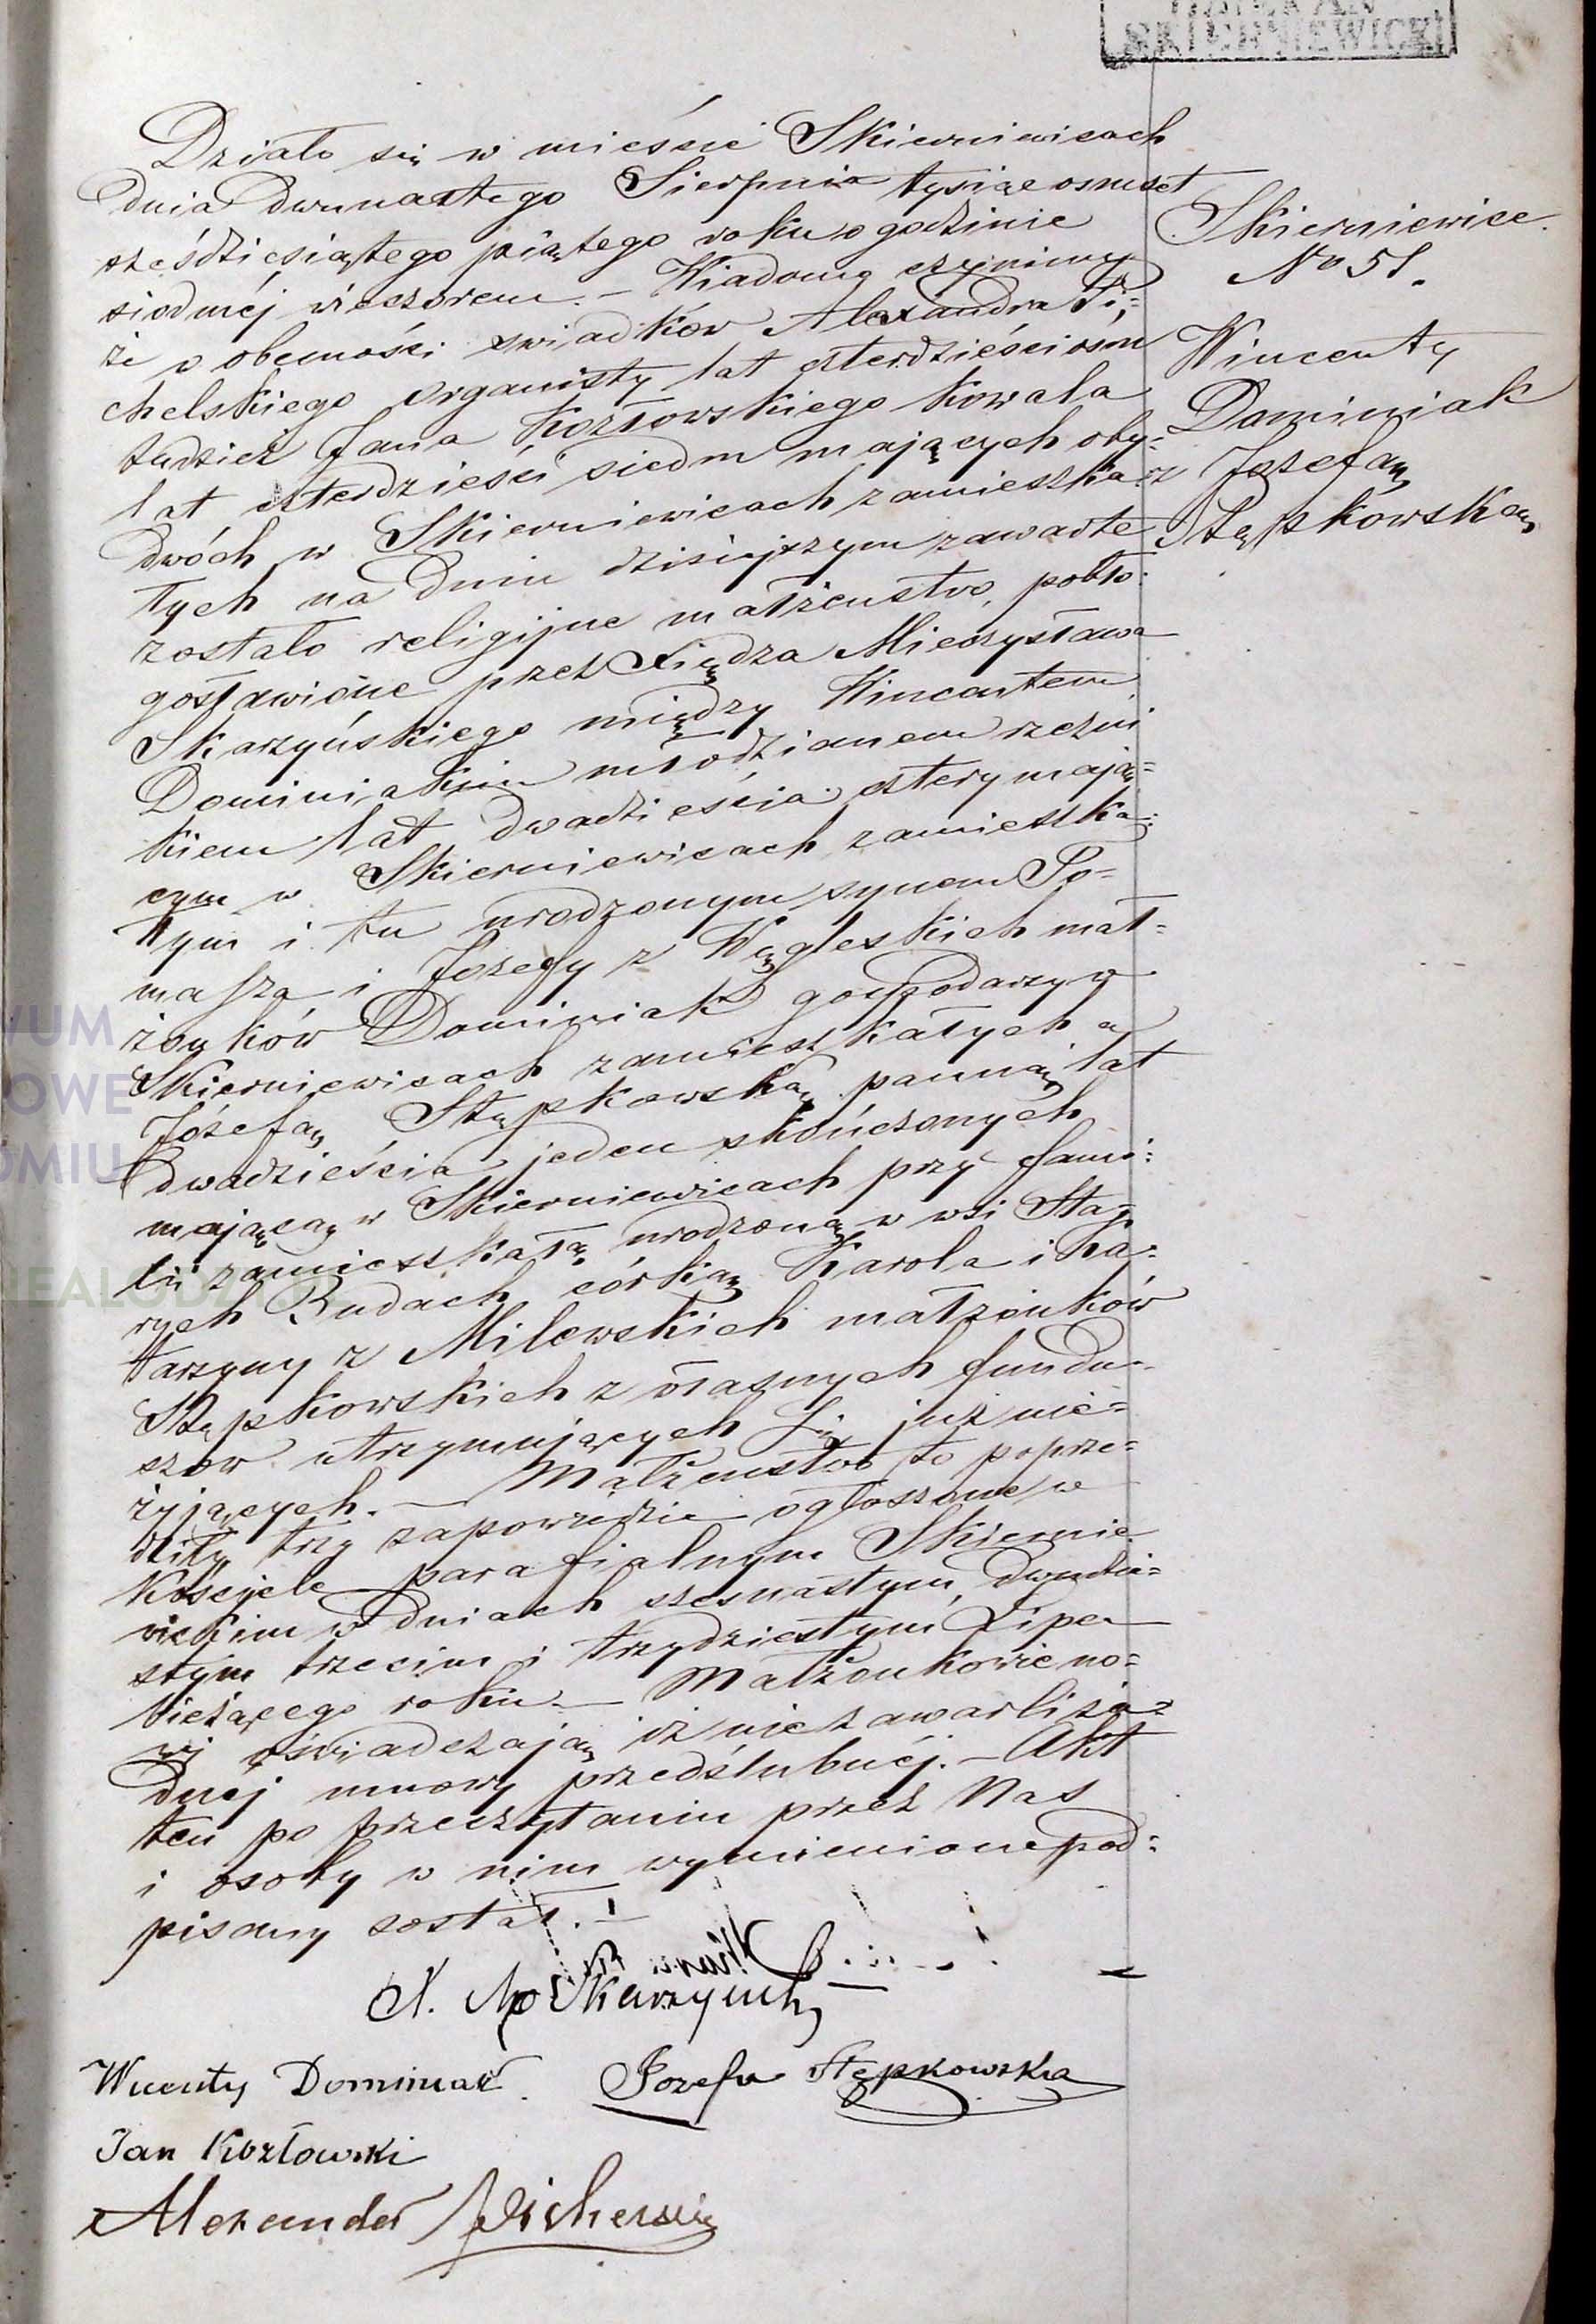 SKIERNIEWICKI
Działo się w mieście Skierniewicach
dnia dwunastego Sierpnia tysiąc osmset
sześdziesiątego piątego roku o godzinie
siodméj wieczorem. – Wiadomo czynimy
że w obecności swiadków Alexandra Pi=
chelskiego organisty lat czterdzieści osm
tudzież Jana Kozłowskiego kowala
lat czterdzieści siedm mających oby=
dwóch w Skierniewicach zamieszka=
łych na dniu dzisiejszym zawarte
zostało religijne małżeństwo, pobło=
gosławione przez Xiędza Mieczysława
Skarzyńskiego między Wincentem
Dominiakiem młodzianem rzeźni
kiem lat dwadzieścia cztery mają=
cym w Skierniewicach zamieszka=
łym i tu urodzonym synem To=
masza i Józefy z Węgleskich mał=
żonków Dominiak gospodarzy w
Skierniewicach zamieszkałych a
Józefą Stępkowską panną lat
dwadzieścia jeden skończonych
mającą w Skierniewicach przy fami=
lii zamieszkałą urodzoną w wsi Sta
rych Rudach córką Karola i Ka=
tarzyny z Milewskich małżonków
Stępkowskich z własnych fundu=
szow utrzymujących się już nie=
żyjących. – Małżeństwo to poprze=
dziły trzy zapowiedzie ogłoszone w
Kościele parafialnym Skiernie
wickim w dniach szesnastym, dwudzie=
stym trzecim i trzydziestym Lipca
bieżącego roku – Małżonkowie no=
wi oświadczają iż nie zawarli ża=
dnéj umowy przedślubnéj. – Akt
ten po przeczytaniu przez Nas
i osoby w nim wymienione pod=
pisany został. –
X. M. Skarzyński
Wincenty Dominiak Józefa Stępkowska
Jan Kozłowski
Alexander Pichelski
Skierniewice.
No 51.
Wincenty
Dominiak
z Józefą
Stępkowską